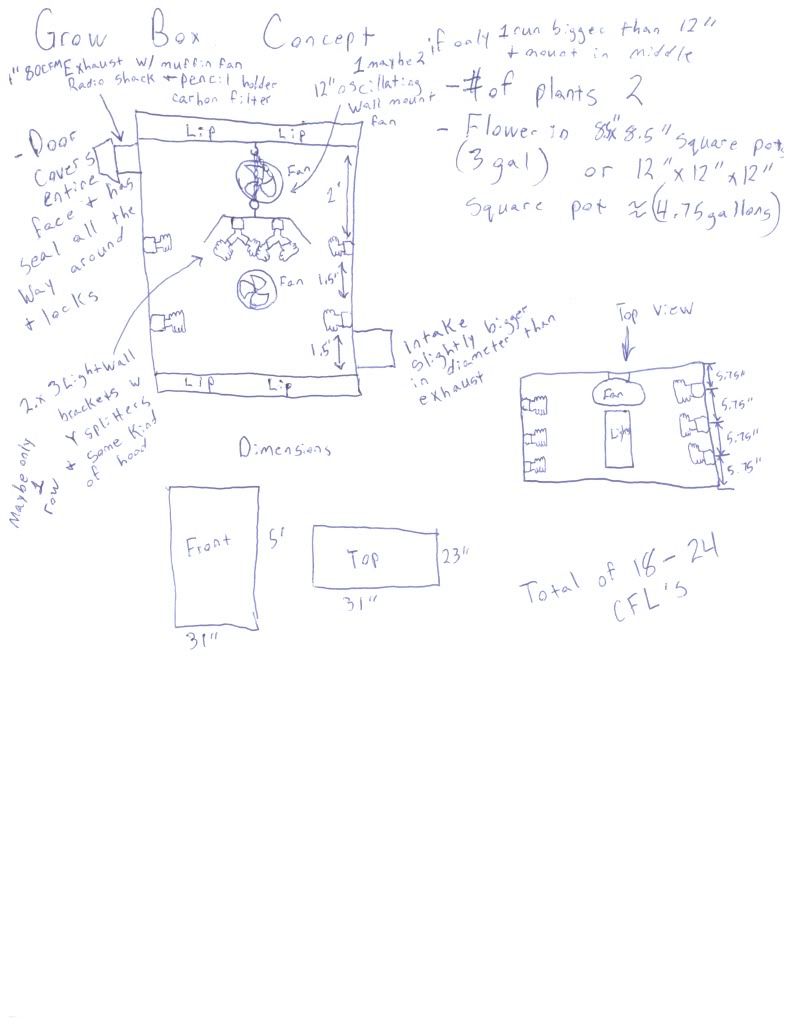 Grow Box Concept
1" 80CFM Exhaust w/ muffin fan
Radio shack + pencil holder
carbon filter
1 maybe 2
12" oscillating
wall mount
fan
if only 1 run bigger than 12"
+ mount in middle
- # of plants 2
- Flower in 8.5" x 8.5" square pot
(3 gal) or 12" x 12" x 12"
square pot ≈ (4.75 gallons)
- Door
covers
entire
face + has
seal all the
way around
+ locks
Lip Lip
Fan
2'
Fan
1.5'
1.5'
Lip Lip
Intake
slightly bigger
in diameter than
exhaust
2 x 3 Light wall
brackets w
Y splitters
+ some kind
of hood
Maybe only
1
row
Top View
Fan
Light
5.75"
5.75"
5.75"
5.75"
Dimensions
Front
5'
31"
Top
23"
31"
Total of 18 - 24
CFL's